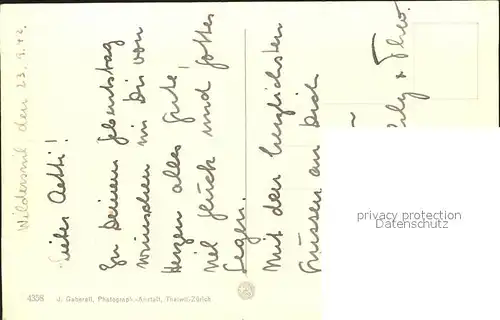 Wilderswil den 23.9.42.
Lieber Aetti!
Zu Deinem Geburtstag
wünschen wir Dir von
Herzen alles Gute,
viel Glück und Gottes
Segen.
Mit den herzlichsten
Grüssen an Dich
+ Theo.
4356 J. Gaberell, Photograph.-Anstalt, Thalwil-Zürich
privacy protection
Datenschutz